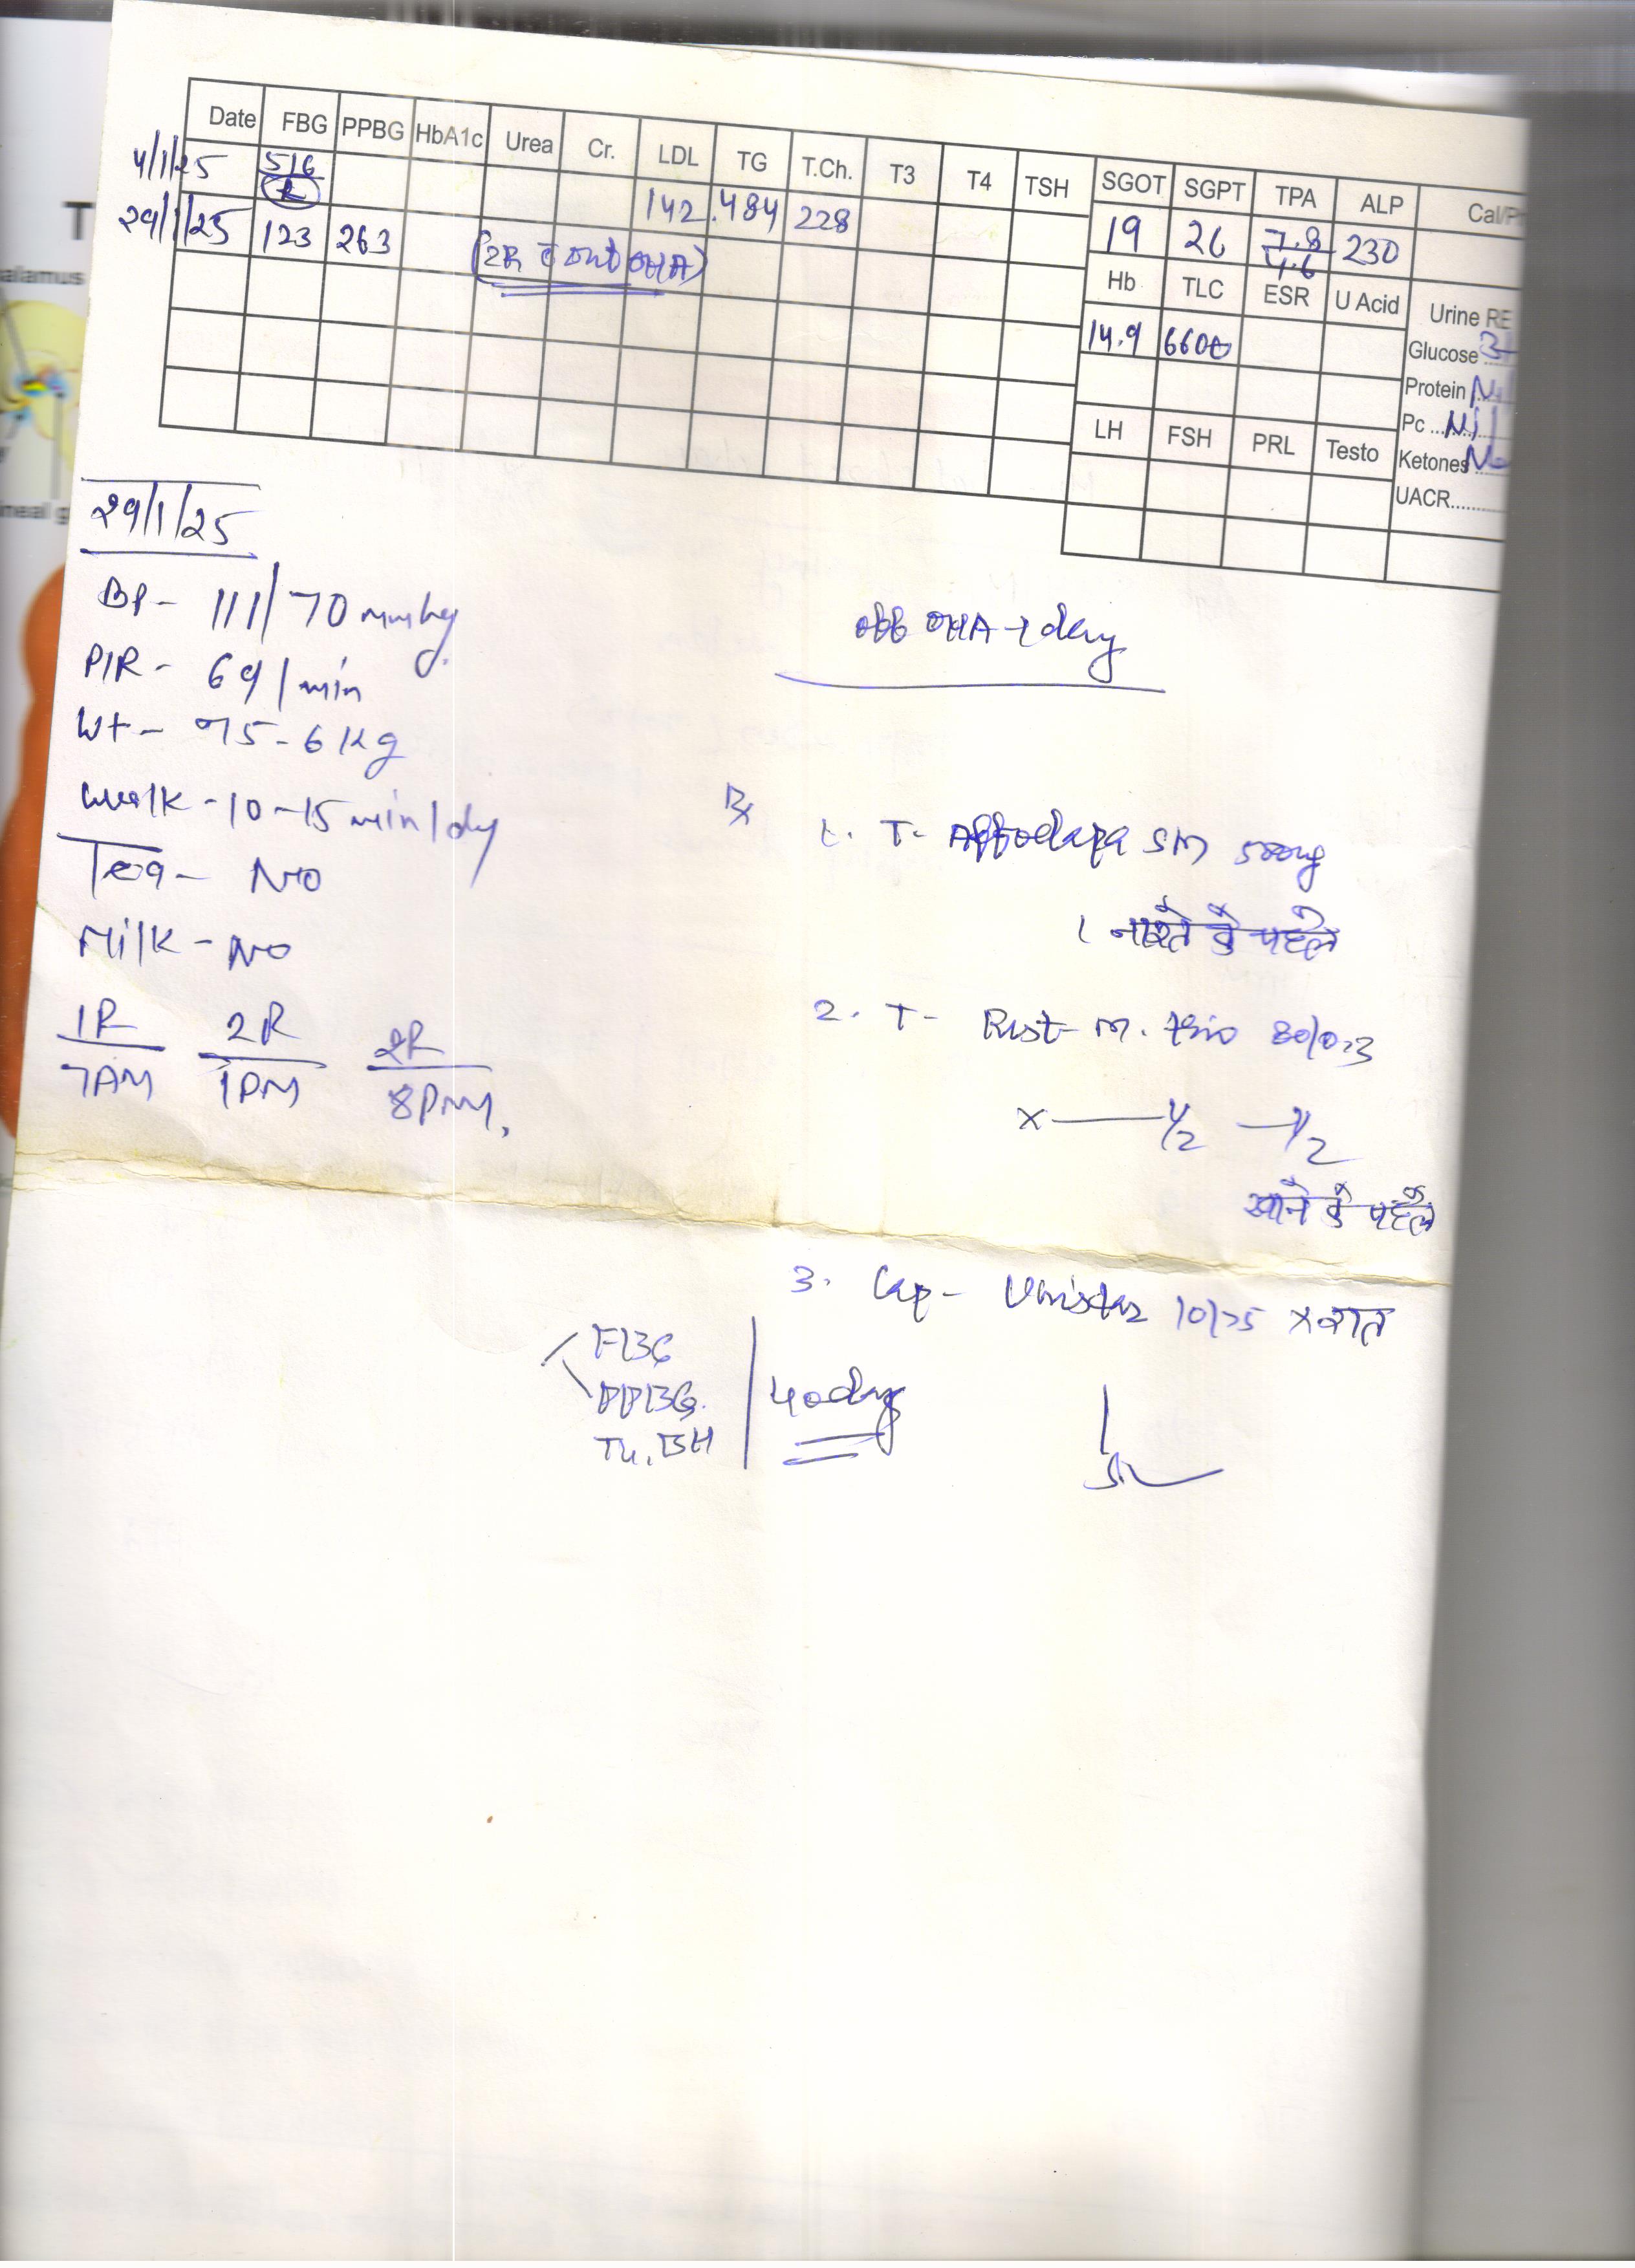 Date FBG PPBG HbA1c Urea Cr. LDL TG T.Ch. T3 T4 TSH
4/1/25 516 R 142 484 228
29/1/25 123 263 (2R c out OHA)
SGOT SGPT TPA ALP
19 26 7.8 4.6 230
Hb TLC ESR U Acid
14.9 6600
LH FSH PRL Testo
Urine RE
Glucose 3+
Protein Nil
Pc ... Nil
Ketones
UACR..........
T
alamus
29/1/25
BP- 111/70 mmhg
P/R- 69/min
Wt- 75-6 Kg
Walk -10-15 min/day
Tea- NO
Milk - NO
1R 2R 2R
7AM 1PM 8PM.
off OHA-1day
Rx
1. T- SM 500mg
1 नाश्ते के पहले
2. T- 80/0.3
x — 1/2 — 1/2
खाने के पहले
3. Cap- 10/75 x रात
FBG
PPBG.
40day